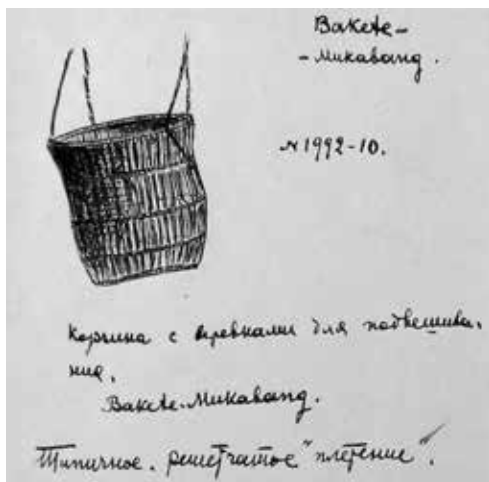 Bakete-
-Микабанд.
№1992-10.
Корзина с веревками для подвешива-
ния.
Bakete-Микабанд.
Типичное. решетчатое "плетение".